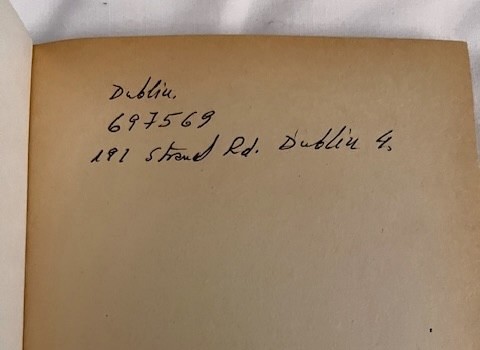 Dublin.
697569
191 Strand Rd. Dublin 4.